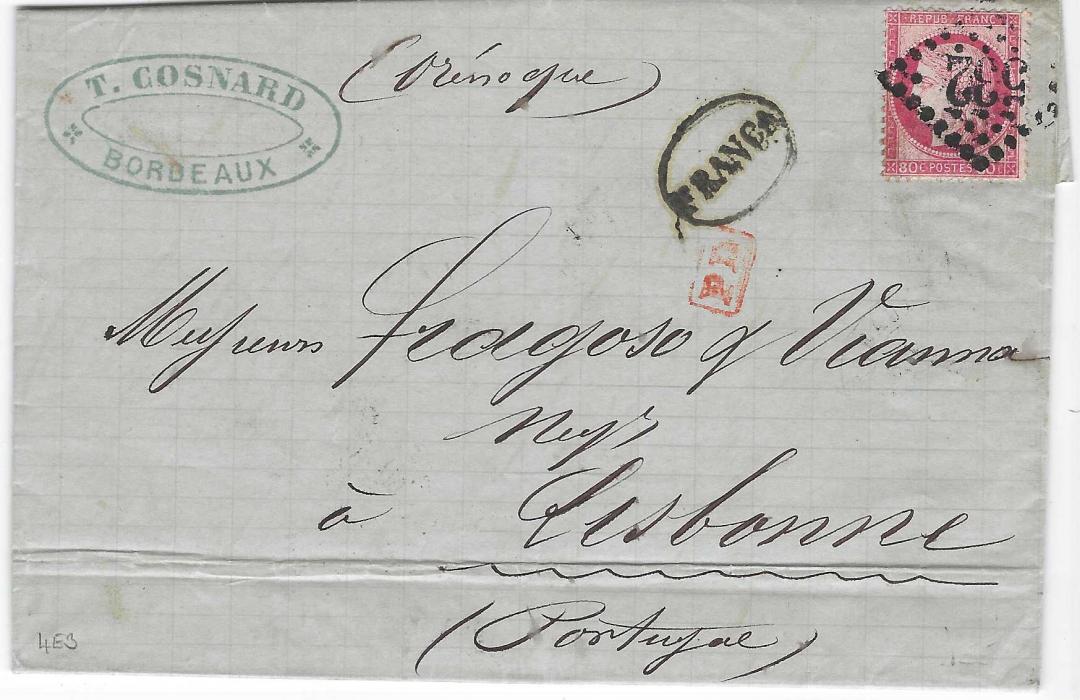 T. COSNARD
BORDEAUX
(Orénoque)
REPUB. FRANC
80C. POSTES
532
FRANCA
PD
Messieurs Fragoso & Vianna
Negts
à Lisbonne
(Portugal)
4E3